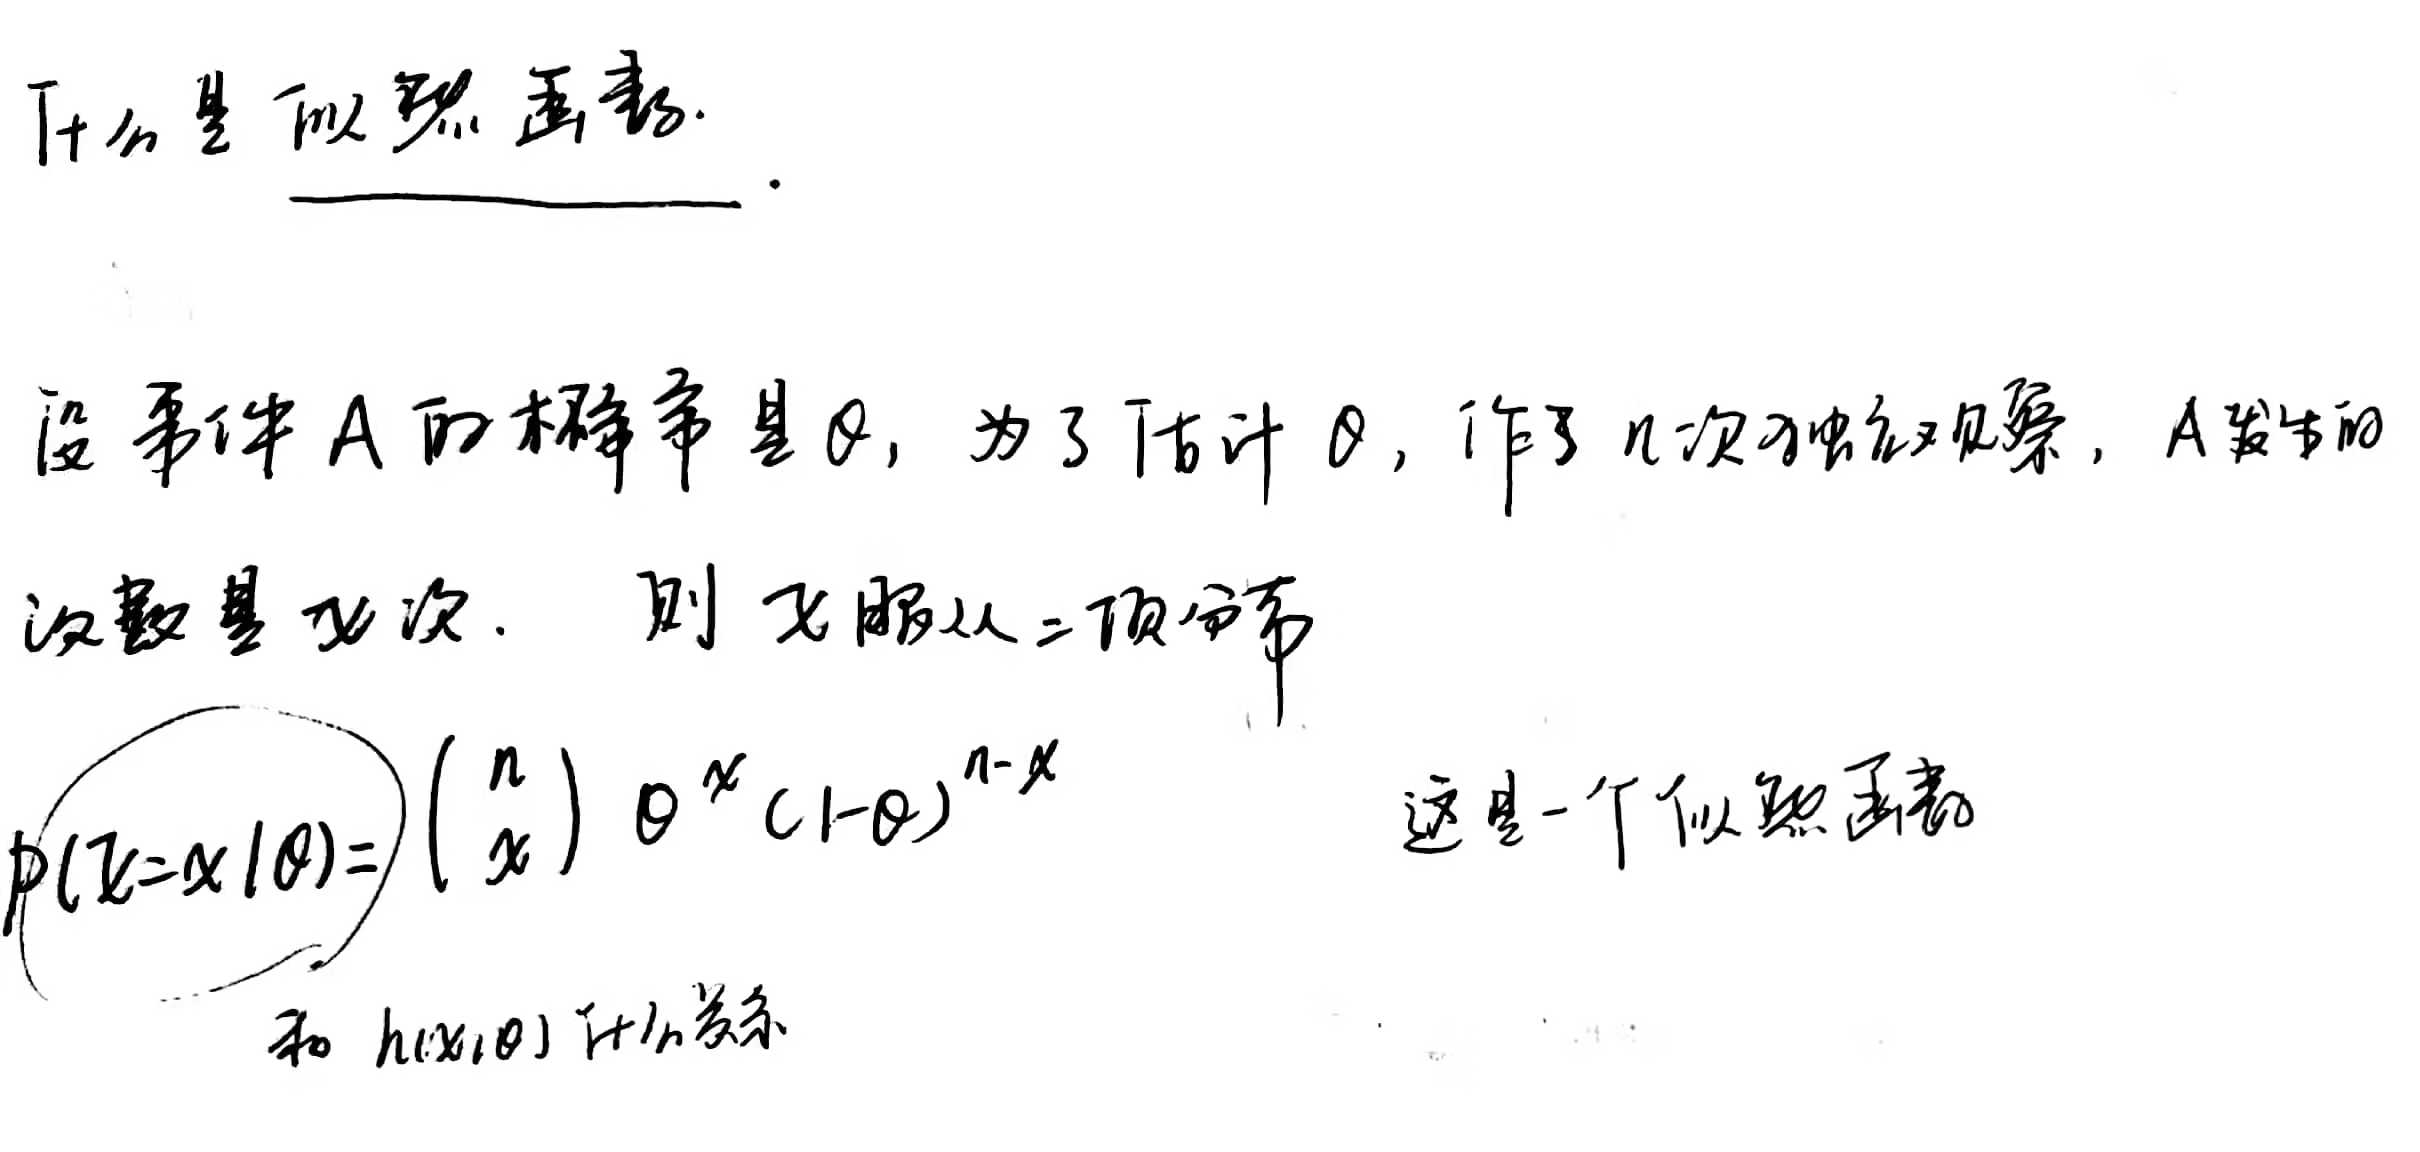 什么是似然函数.
设事件A的概率是θ, 为了估计θ, 作了n次独立观察, A发生的
次数是x次. 则X服从二项分布
P(X=x|θ)= (n x) θ^x (1-θ)^{n-x} 这是一个似然函数
和 h(x,θ) 什么关系